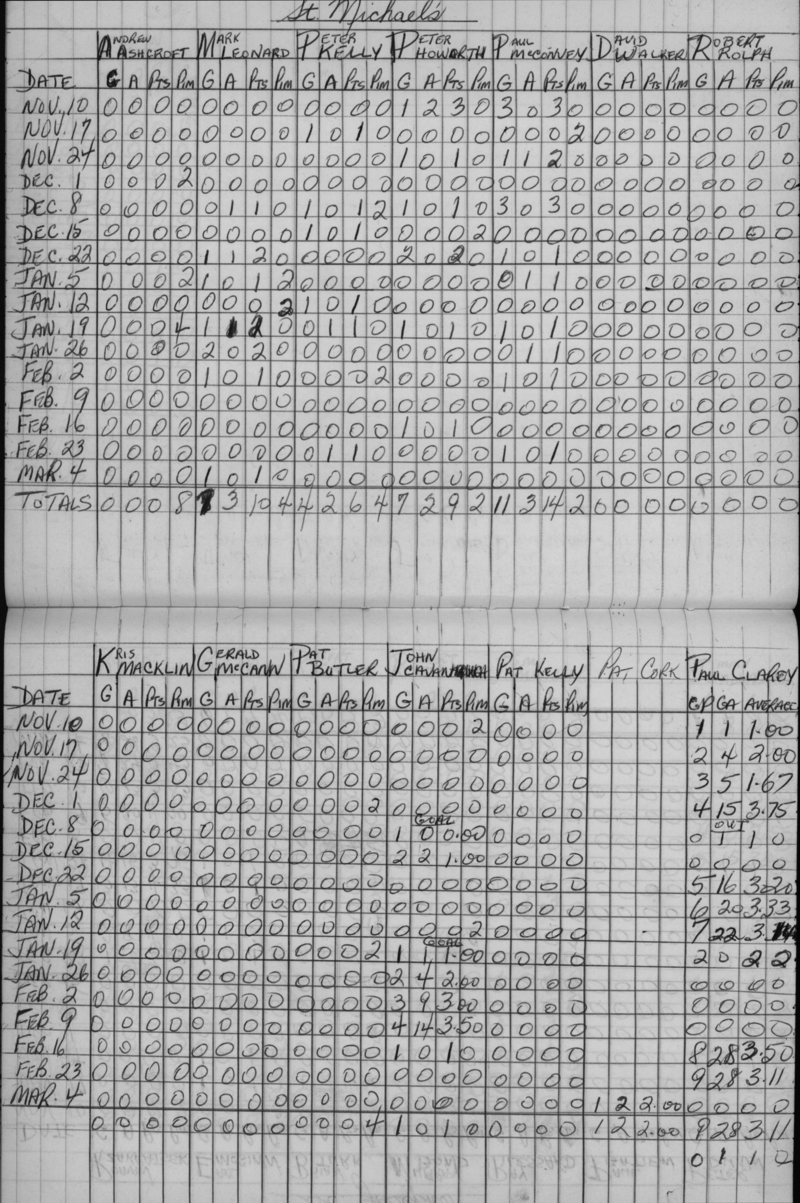 St. Michael's
ANDREW ASHCROFT MARK LEONARD PETER KELLY PETER HOWORTH PAUL McCONNEY DAVID WALKER ROBERT ROLPH
DATE G A Pts Pim G A Pts Pim G A Pts Pim G A Pts Pim G A Pts Pim G A Pts Pim G A Pts Pim
NOV. 10 0 0 0 0 0 0 0 0 0 0 0 0 1 2 3 0 3 0 3 0 0 0 0 0 0 0 0 0
NOV. 17 0 0 0 0 0 0 0 0 1 0 1 0 0 0 0 0 0 0 0 2 0 0 0 0 0 0 0 0
NOV. 24 0 0 0 0 0 0 0 0 0 0 0 0 1 0 1 0 1 1 2 0 0 0 0 0 0 0 0 0
DEC. 1 0 0 0 2 0 0 0 0 0 0 0 0 0 0 0 0 0 0 0 0 0 0 0 0 0 0 0 0
DEC. 8 0 0 0 0 0 1 1 0 1 0 1 2 1 0 1 0 3 0 3 0 0 0 0 0 0 0 0 0
DEC. 15 0 0 0 0 0 0 0 0 1 0 1 0 0 0 0 2 0 0 0 0 0 0 0 0 0 0 0 0
DEC. 22 0 0 0 0 1 1 2 0 0 0 0 0 2 0 2 0 1 0 1 0 0 0 0 0 0 0 0 0
JAN. 5 0 0 0 2 1 0 1 2 0 0 0 0 0 0 0 0 0 1 1 0 0 0 0 0 0 0 0 0
JAN. 12 0 0 0 0 0 0 0 2 1 0 1 0 0 0 0 0 0 0 0 0 0 0 0 0 0 0 0 0
JAN. 19 0 0 0 4 1 1 2 0 0 1 1 0 1 0 1 0 1 0 1 0 0 0 0 0 0 0 0 0
JAN. 26 0 0 0 0 2 0 2 0 0 0 0 0 0 0 0 0 0 1 1 0 0 0 0 0 0 0 0 0
FEB. 2 0 0 0 0 1 0 1 0 0 0 0 2 0 0 0 0 1 0 1 0 0 0 0 0 0 0 0 0
FEB. 9 0 0 0 0 0 0 0 0 0 0 0 0 0 0 0 0 0 0 0 0 0 0 0 0 0 0 0 0
FEB. 16 0 0 0 0 0 0 0 0 0 0 0 0 1 0 1 0 0 0 0 0 0 0 0 0 0 0 0 0
FEB. 23 0 0 0 0 0 0 0 0 0 1 1 0 0 0 0 0 1 0 1 0 0 0 0 0 0 0 0 0
MAR. 4 0 0 0 0 1 0 1 0 0 0 0 0 0 0 0 0 0 0 0 0 0 0 0 0 0 0 0 0
TOTALS 0 0 0 8 7 3 10 4 4 2 6 4 7 2 9 2 11 3 14 2 0 0 0 0 0 0 0 0
KRIS MACKLIN GERALD McCANN PAT BUTLER JOHN PAT KELLY PAT CORK PAUL CLAREY
DATE G A Pts Pim G A Pts Pim G A Pts Pim G A Pts Pim G A Pts Pim GP GA AVERAGE
NOV. 10 0 0 0 0 0 0 0 0 0 0 0 0 0 0 0 2 0 0 0 0 1 1 1.00
NOV. 17 0 0 0 0 0 0 0 0 0 0 0 0 0 0 0 0 0 0 0 0 2 4 2.00
NOV. 24 0 0 0 0 0 0 0 0 0 0 0 0 0 0 0 0 0 0 0 0 3 5 1.67
DEC. 1 0 0 0 0 0 0 0 0 0 0 0 2 0 0 0 0 0 0 0 0 4 15 3.75
GOAL OUT
DEC. 8 0 0 0 0 0 0 0 0 0 0 0 0 1 0 0.00 0 0 0 0 0 1 1 0
DEC. 15 0 0 0 0 0 0 0 0 0 0 0 0 2 2 1.00 0 0 0 0 0 0 0 0
DEC. 22 0 0 0 0 0 0 0 0 0 0 0 0 0 0 0 0 0 0 0 0 5 16 3.20
JAN. 5 0 0 0 0 0 0 0 0 0 0 0 0 0 0 0 0 0 0 0 0 6 20 3.33
JAN. 12 0 0 0 0 0 0 0 0 0 0 0 0 0 0 0 2 0 0 0 0 7 22 3.14
GOAL
JAN. 19 0 0 0 0 0 0 0 0 0 0 0 2 1 1 1.00 0 0 0 0 2 0 2 2
JAN. 26 0 0 0 0 0 0 0 0 0 0 0 0 2 4 2.00 0 0 0 0 0 0 0 0
FEB. 2 0 0 0 0 0 0 0 0 0 0 0 0 3 9 3.00 0 0 0 0 0 0 0 0
FEB. 9 0 0 0 0 0 0 0 0 0 0 0 0 4 14 3.50 0 0 0 0 0 0 0 0
FEB. 16 0 0 0 0 0 0 0 0 0 0 0 0 1 0 1 0 0 0 0 0 8 28 3.50
FEB. 23 0 0 0 0 0 0 0 0 0 0 0 0 0 0 0 0 0 0 0 0 9 28 3.11
MAR. 4 0 0 0 0 0 0 0 0 0 0 0 0 0 0 0 0 0 0 0 0 1 2 2.00 0 0 0 0
0 0 0 0 0 0 0 0 0 0 0 4 1 0 1 0 0 0 0 0 1 2 2.00 9 28 3.11
0 1 1 0